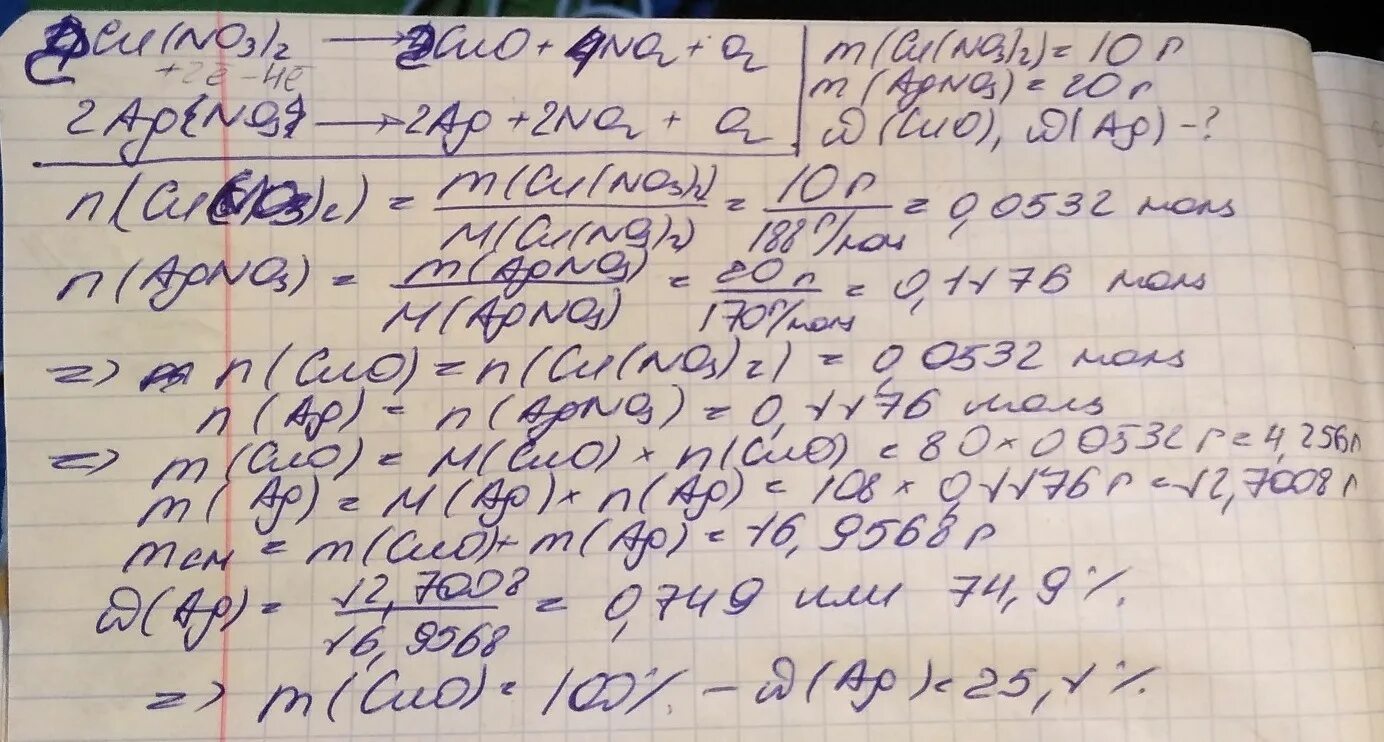 2Cu(NO3)2 → 2CuO + 4NO2 + O2
+2e̅ -4e̅
2AgNO3 → 2Ag + 2NO2 + O2
m(Cu(NO3)2) = 10 г
m(AgNO3) = 20 г
ω(CuO), ω(Ag) - ?
n(Cu(NO3)2) = m(Cu(NO3)2) / M(Cu(NO3)2) = 10 г / 188 г/моль = 0,0532 моль
n(AgNO3) = m(AgNO3) / M(AgNO3) = 20 г / 170 г/моль = 0,1176 моль
=> n(CuO) = n(Cu(NO3)2) = 0,0532 моль
n(Ag) = n(AgNO3) = 0,1176 моль
=> m(CuO) = M(CuO) × n(CuO) = 80 × 0,0532 г = 4,256 г
m(Ag) = M(Ag) × n(Ag) = 108 × 0,1176 г = 12,7008 г
mсм = m(CuO) + m(Ag) = 16,9568 г
ω(Ag) = 12,7008 / 16,9568 = 0,749 или 74,9%.
=> m(CuO) = 100% - ω(Ag) = 25,1%.